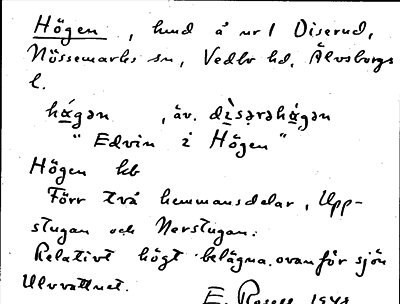 Högen, hmd å nr 1 Diserud,
Nössemarks sn, Vedbo hd, Älvsborgs
l.
hǻgən , äv. dìsərəhǻgən
"Edvin i Högen"
Högen kb
Förr två hemmansdelar, Upp-
stugan och Nerstugan.
Relativt högt belägna ovanför sjön
Ulvvattnet.
E. 1948